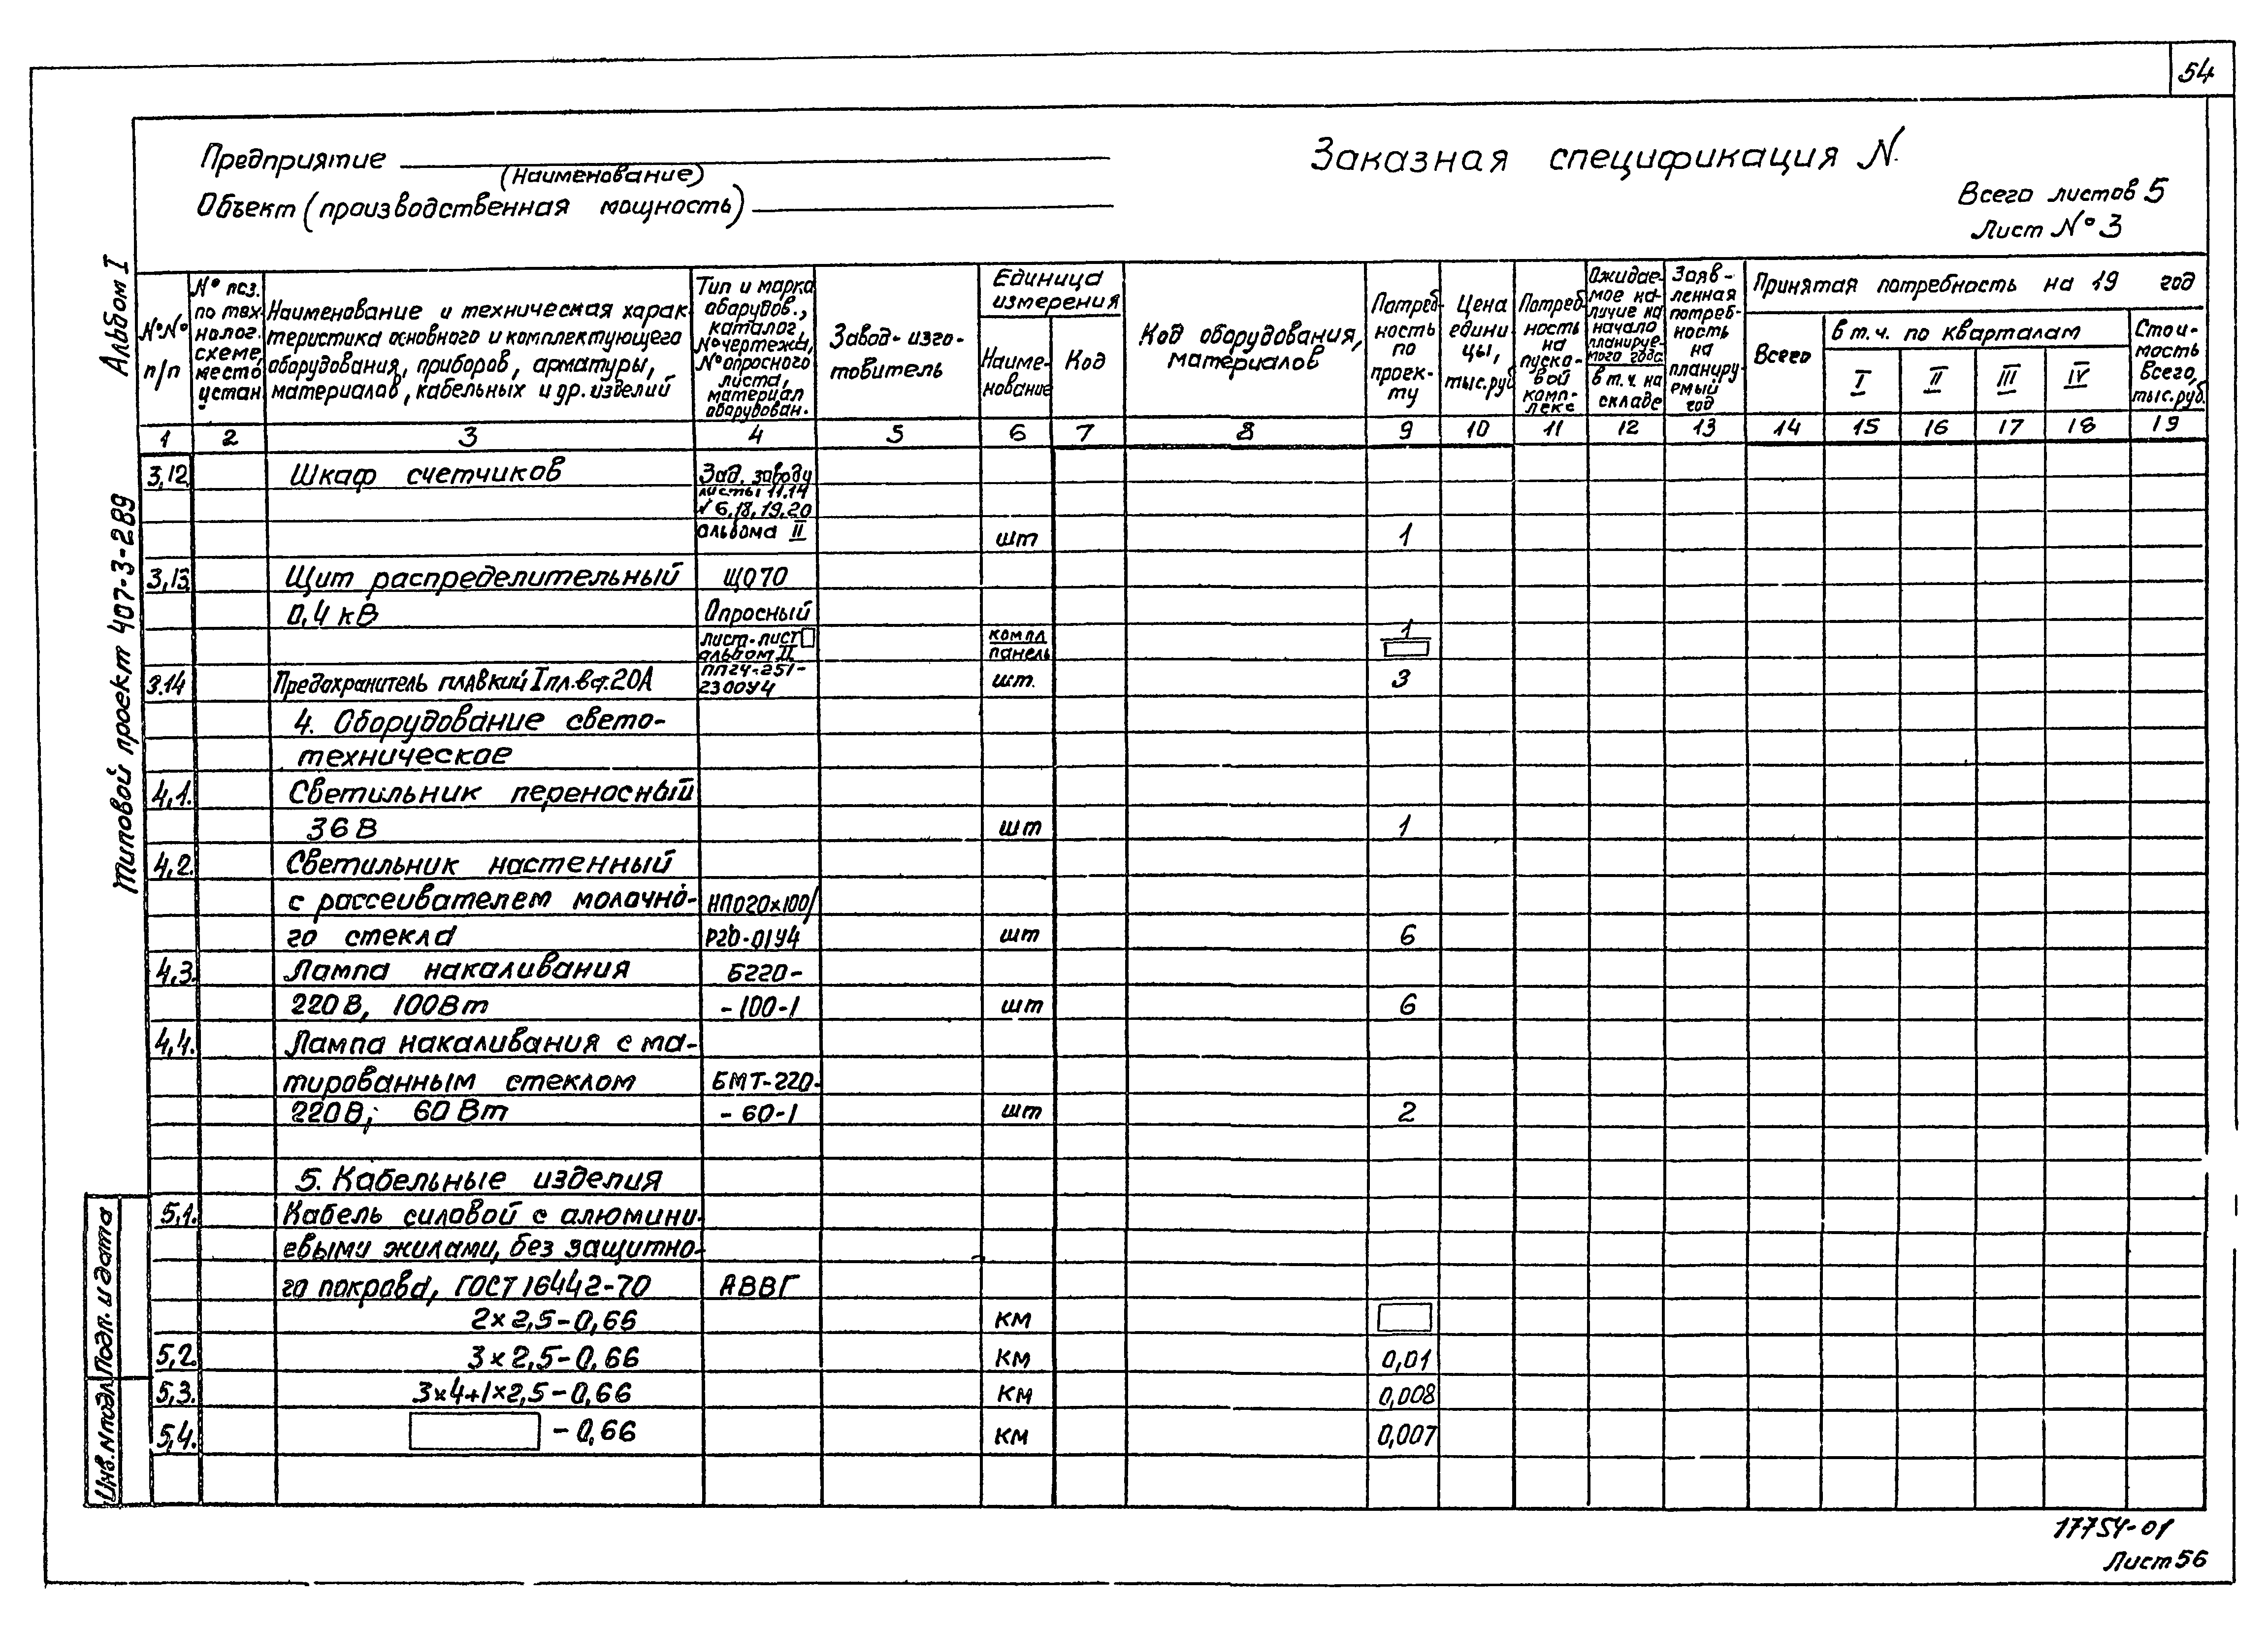 54
Предприятие
(Наименование)
Объект (производственная мощность)
Заказная спецификация N.
Всего листов 5
Лист N° 3
Альбом I
Типовой проект 407-3-289
N°N° п/п
N° поз. по тех- нолог. схеме, место устан.
Наименование и техническая харак-
теристика основного и комплектующего
оборудования, приборов, арматуры,
материалов, кабельных и др. изделий
Тип и марка
оборудов.,
каталог,
N° чертежа,
N° опросного
листа,
материал
оборудован.
Завод-изго-
товитель
Единица
измерения
Наиме-
нование
Код
Код оборудования,
материалов
Потреб-
ность
по
проек-
ту
Цена
едини
цы,
тыс.руб
Потреб
ность
на
пуско-
вой
комп-
лекс
Ожидае-
мое на-
личие на
начало
планируе-
мого года
в т.ч. на
складе
Заяв-
ленная
потреб-
ность
на
планиру
емый
год
Принятая потребность на 19 год
Всего
в т.ч. по кварталам
I II III IV
Стои-
мость
всего,
тыс.руб.
1 2 3 4 5 6 7 8 9 10 11 12 13 14 15 16 17 18 19
3,12. Шкаф счетчиков Зад. заводу
листы 11.14
6,18,19,20
альбома II шт 1
3,13. Щит распределительный ЩО70
0,4 кВ Опросный
лист-лист компл 1
альбом II панель
3.14 Предохранитель плавкий Iпл.вст.20А ПП24-251-
2300У4 шт. 3
4. Оборудование свето-
техническое
4,1. Светильник переносный
36 В шт 1
4,2. Светильник настенный
с рассеивателем молочно- НПО20х100/
го стекла Р20-01У4 шт 6
4,3. Лампа накаливания Б220-
220 В, 100Вт -100-1 шт 6
4,4. Лампа накаливания с ма-
тированным стеклом БМТ-220-
220В; 60 Вт -60-1 шт 2
5. Кабельные изделия
5,1. Кабель силовой с алюмини-
евыми жилами, без защитно-
го покрова, ГОСТ 16442-70 АВВГ
2×2,5-0,66 км
5,2. 3×2,5-0,66 км 0,01
5,3. 3×4+1×2,5-0,66 км 0,008
5,4. -0,66 км 0,007
Инв. N подл. Подп. и дата
17754-01
Лист 56